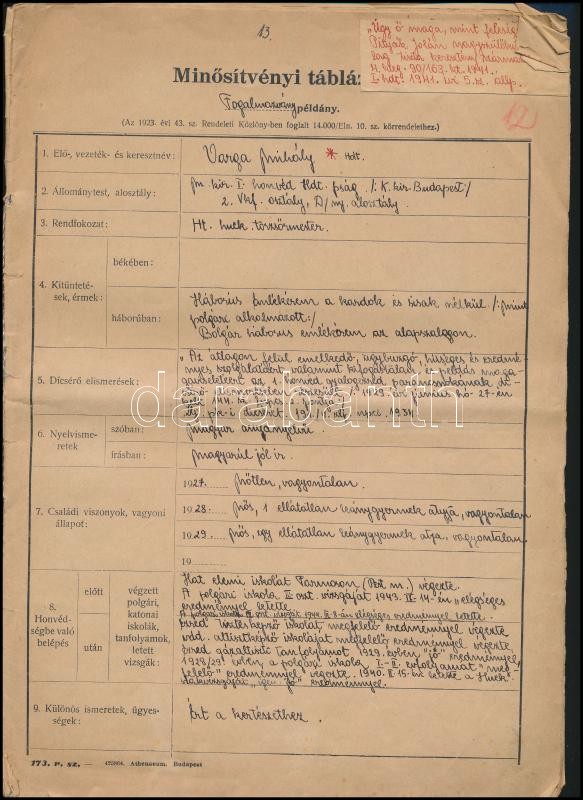 13.
"Úgy ő maga, mint felesége
Pityják Jolán nagyszülőkig
lag keresztény
1941.
I. hdt. 1941. évi 5. sz.
12
Minősítvényi tábláz
Fogalmazványpéldány.
(Az 1923. évi 43. sz. Rendeleti Közlöny-ben foglalt 14.000/Eln. 10. sz. körrendelethez.)
1. Elő-, vezeték- és keresztnév: Varga Mihály * Hdt.
2. Állománytest, alosztály: m. kir. I. honvéd Hdt. pság. /: K. kir. Budapest:/
2. Vkf. osztály, D/ny. alosztály
3. Rendfokozat: Ht. huck. törzsőrmester.
4. Kitünteté-
sek, érmek:
békében:
háborúban:
Háborús Emlékérem a kardok és sisak nélkül /: mint
polgári alkalmazott:/
Bolgár háborus emlékérem az alapszalagon.
5. Dicsérő elismerések:
"Az átlagon felül emelkedő, ügybuzgó, hűséges és eredmé-
nyes szolgálatáért, valamint kifogástalan és példás maga-
viseletéért az 1. honvéd gyalogezred parancsnokának
1929. évi június hó 27-én
1931.
6. Nyelvisme-
retek
szóban: magyar anyanyelvü.
írásban: magyarúl jól ír.
7. Családi viszonyok, vagyoni
állapot:
1927. nőtlen, vagyontalan.
1928: nős, 1 ellátatlan leánygyermek atyja, vagyontalan
1929. nős, egy ellátatlan leánygyermek atyja, vagyontalan.
19
8.
Honvéd-
ségbe való
belépés
előtt
után
végzett
polgári,
katonai
iskolák,
tanfolyamok,
letett
vizsgák:
Hat elemi iskolát Farmoson (Pest m.) végezte.
A polgári iskola III. oszt. vizsgáját 1943. II. 14-én "elégséges
eredménnyel letette.
A polgári iskola IV. oszt. vizsgáját 1944. II. 8-án elégséges eredménnyel letette.
ezred tiszteskepző iskolát megfelelő eredménnyel végezte
hdd. altisztképző iskoláját megfelelő eredménnyel végezte
ezred gázaltiszti tanfolyamot 1929. évben "jó" eredménnyel
1928/29. évben a polgári iskola I.-II. évfolyamát "meg-
felelő" eredménnyel végezte. 1940. II. 15-én letette a "Huck."
szakvizsgáját "igen jó" eredménnyel.
9. Különös ismeretek, ügyes-
ségek:
Ért a kertészethez.
173. r. sz. — 425864. Athenaeum. Budapest
darabanth